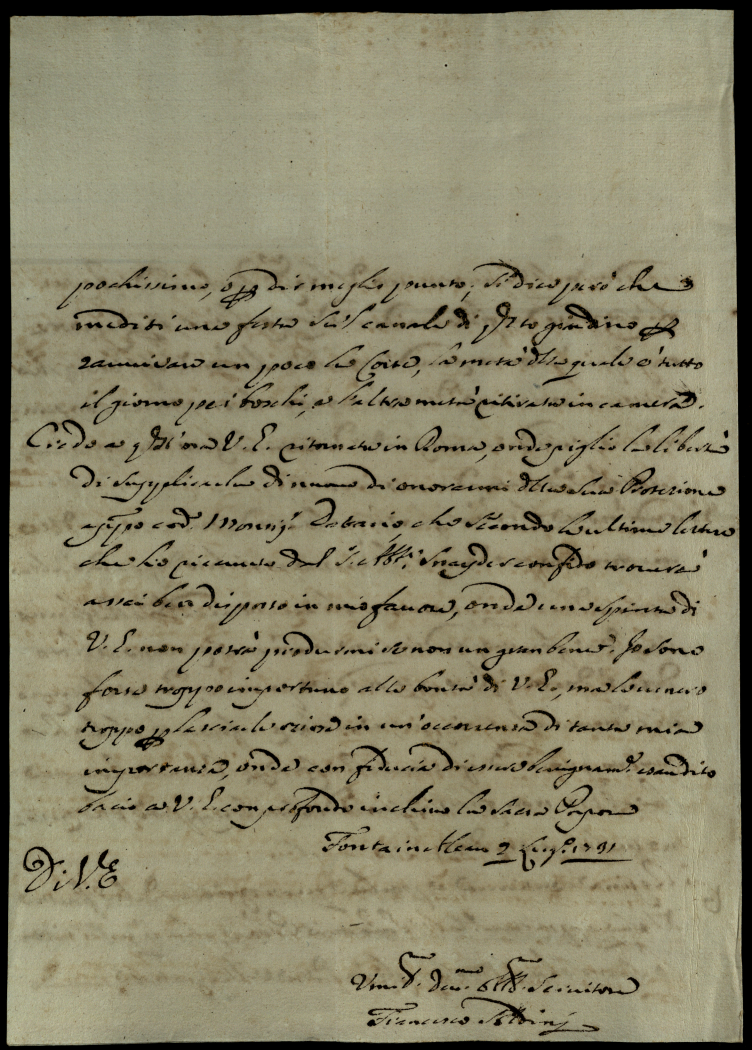 pochissimo, o p dir meglio punto; si dice però che
mediti una festa sul canale di qsto giardino p
ravvivare un poco la Corte, la metà dlla quale è tutto
il giorno pe i boschi, e l'altra metà ritirata in camera.
Credo a qst'ora V. E. ritornata in Roma, onde piglio la libertà
di supplicarla di nuovo di onorarmi dlla sua Protezione
appo cod. Monsig. Datario, che secondo le ultime lettere
che ho ricevuto dal S. Abb. Snayders confido troverà
assai ben disposto in mio favore, onde una spinta di
V. E. non potrà produrmi se non un gran bene. Io sono
forse troppo importuno alla bontà di V. E., ma la venero
troppo p lasciarla oziosa in un'occorrenza di tanta mia
importanza, onde con fiducia di essere benignam. esaudito
bacio a V. E. con profondo inchino la Sacra Porpora
Fontainebleau 2 Lug. 1731
Di V. E
Um. Dev. Obb. Servitore
Francesco